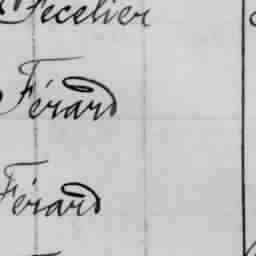 Fecelier
Férard
Férard